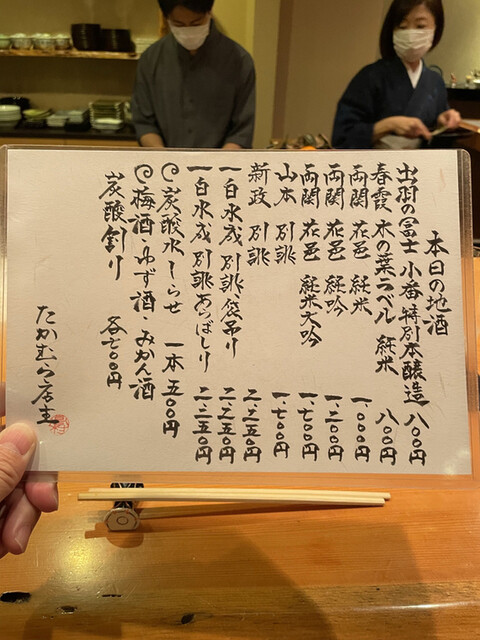 本日の地酒
出羽の冨士 小番 特別本醸造 八〇〇円
春霞 木の葉ラベル 純米 八〇〇円
両関 花邑 純米 一、〇〇〇円
両関 花邑 純吟 一、三〇〇円
両関 花邑 純米大吟 一、七〇〇円
山本 別誂 一、七〇〇円
新政 別誂 二、二五〇円
一白水成 別誂 袋吊り 二、二五〇円
一白水成 別誂 あらばしり 二、二五〇円
炭酸水 しらせ 一本 五〇〇円
梅酒・ゆず酒・みかん酒
炭酸割り 各七〇〇円
たかむら店主